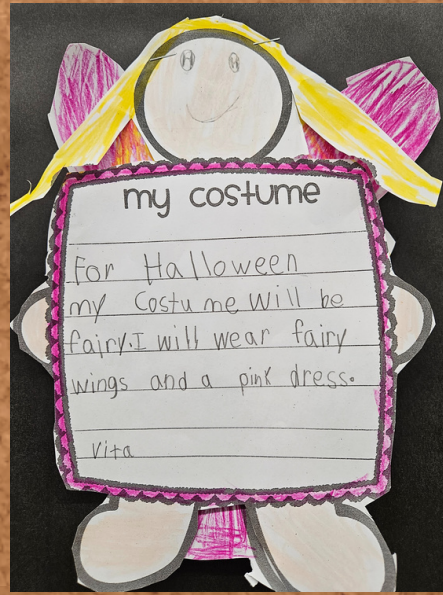 my costume
For Halloween
my Costume will be
fairy.I will wear fairy
wings and a pink dress.
Vita